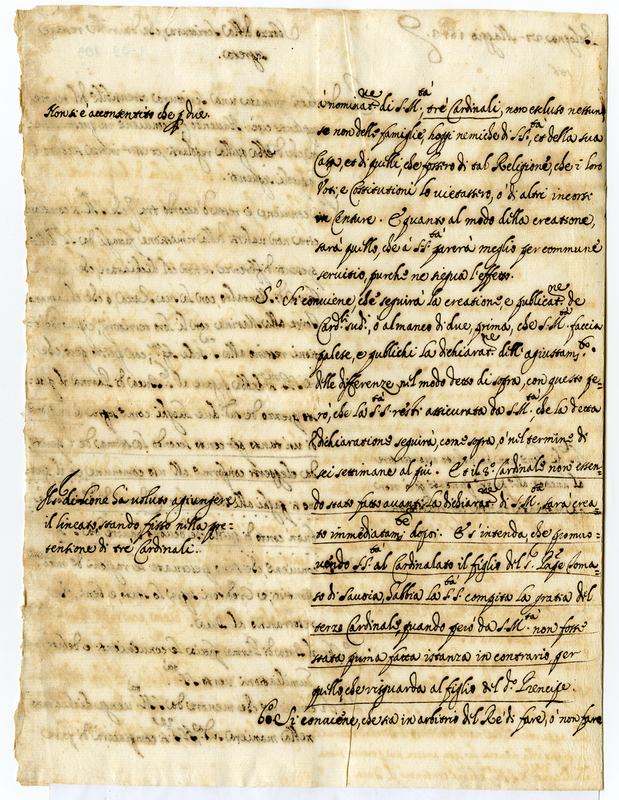 Non si è acconsentito che p due.
à nominat.ne di S. M.tà, tre Cardinali, non escluso nessuno
se non delle famiglie hoggi nemiche di S. S.tà, et della sua
Casa, et di quelli, che fossero di tal Religione, che i loro
Voti, e Costitutioni lo vietassero, ò di altri incorsi
in Censure. E quanto al modo della creatione,
sarà quello, che à S. S.tà parerà meglio per commune
servitio, purche ne segua l'effetto.
5.o Si conviene, che seguirà la creatione, e publicat.ne de
Card.li sud.i, ò almanco di due, prima, che S. M.tà faccia
palese, e publichi la dichiarat.ne dell' agiustam.to
delle differenze nel modo detto di sopra, con questo pe-
rò, che la S. S.tà resti assicurata da S. M.tà che la detta
dichiaratione seguirà, come sopra, ò nel termine di
sei settimane al più. Et il 3.o Cardinale non essen-
do stato fatto avanti la dichiarat.ne di S. M.tà, sarà crea-
to immediatam.te dopoi. E s'intenda, che promo-
vendo S. S.tà al Cardinalato il figlio del S. Prñpe Toma-
so di Savoia, habbia la S. S.tà compita la gratia del
terzo Cardinale, quando però da S. M.tà non fosse
stata prima fatta istanza in contrario per
quello, che risguarda al figlio del d.o Prencipe.
Il S. di Lione ha voluto agiungere
il lineato, stando fisso nella pre-
tensione di tre Cardinali.
6.o E Si conviene, che sia in arbitrio del Rè di fare, ò non fare